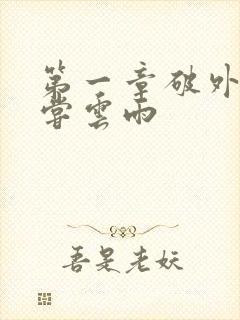 第一章破外
嘗雲雨
吾是老妖